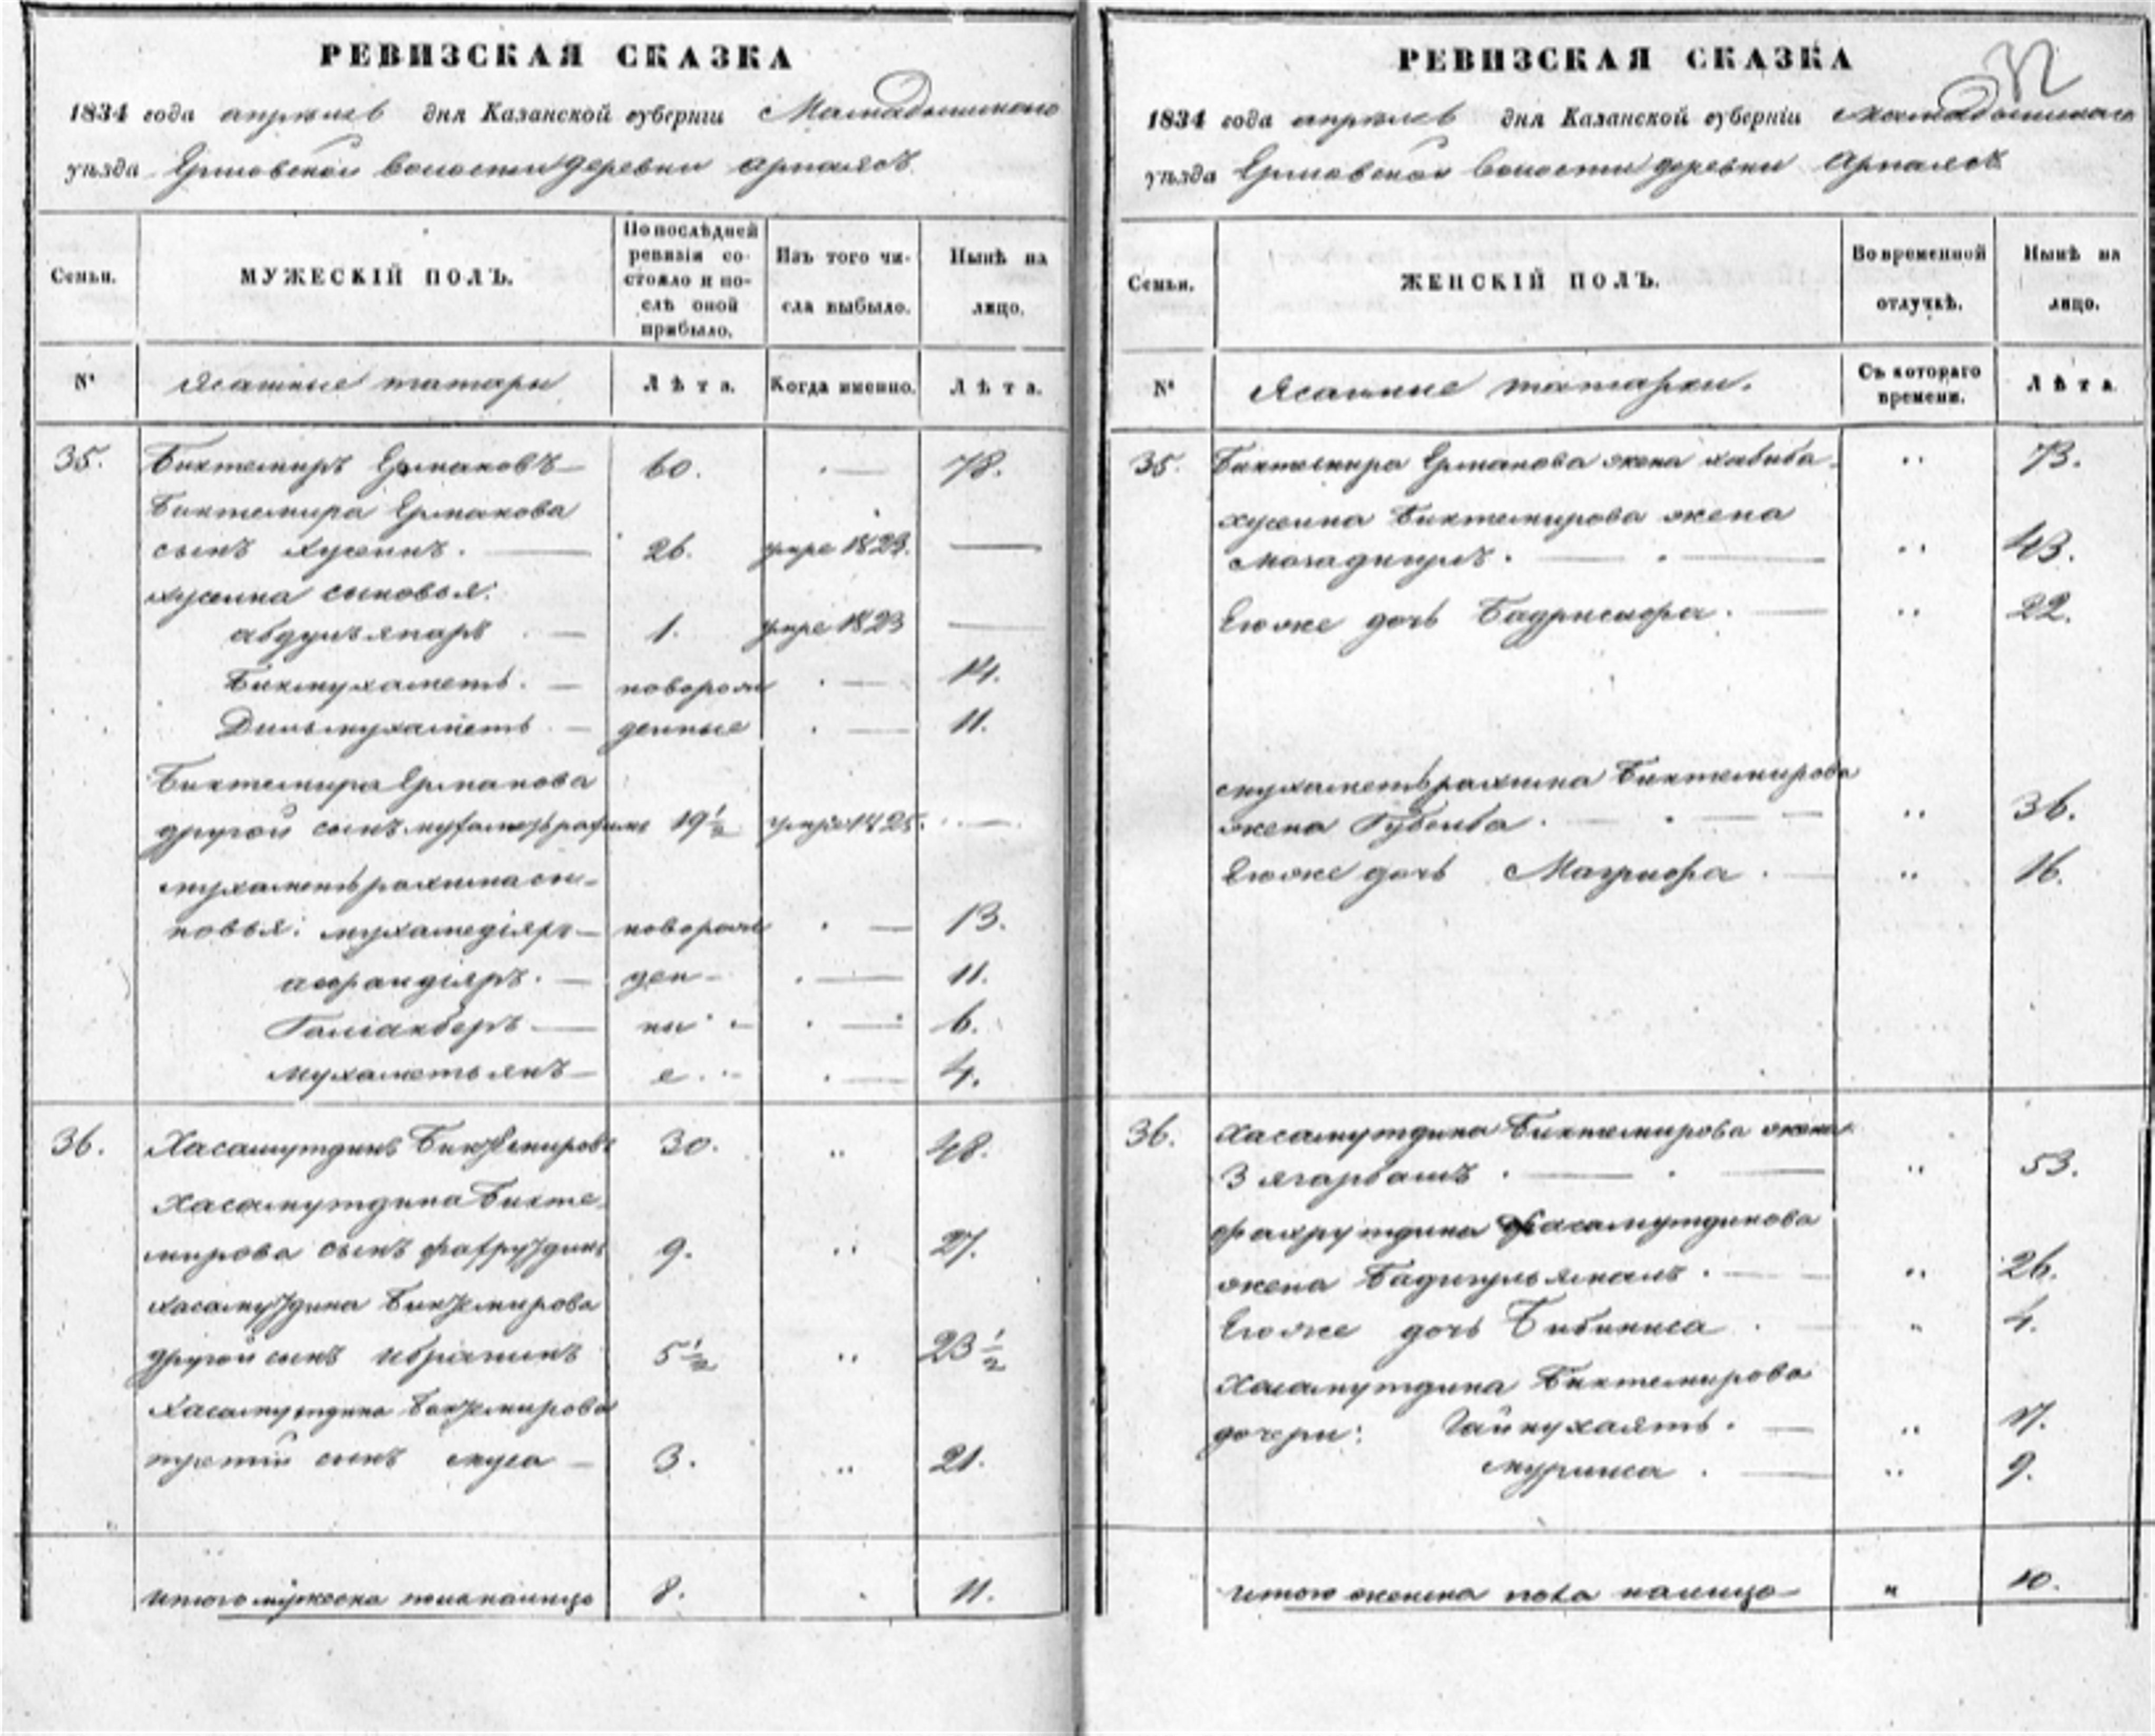 РЕВИЗСКАЯ СКАЗКА
1834 года апрѣля дня Казанской губерніи Мамадышскаго
уѣзда волости деревни
Семьи.
МУЖЕСКІЙ ПОЛЪ.
По послѣдней
ревизіи со-
стояло и по-
слѣ оной
прибыло.
Изъ того чи-
сла выбыло.
Нынѣ на
лицо.
№
Ясашные татары
Лѣта.
Когда именно.
Лѣта.
35. Биктемиръ Ермаковъ— 60. — 78.
Биктемира Ермакова
сынъ Хусеинъ. — 26. умре 1829. —
Хусеина сыновья:
абдулъяпаръ — 1. умре 1823 —
Бикмухаметь. — новорож — 14.
Дильмухаметь — денные — 11.
Биктемира Ермакова
другой сынъ мухаметьрахимъ 19½ умре 1825. —
мухаметьрахима сы-
новья: мухамедіяръ— новорож — 13.
асфандіяръ. — ден- — 11.
Галіакберъ — ны — 6.
мухаметьянъ— е — 4.
36. Хасамутдинъ Биктемировъ 30. „ 48.
Хасамутдина Бикте-
мирова сынъ фахрутдинъ 9. „ 27.
Хасамутдина Биктемирова
другой сынъ ибрагимъ 5½ „ 23½
Хасамутдина Биктемирова
третій сынъ муса — 3. „ 21.
итого мужеска пола налицо 8. 11.
32
РЕВИЗСКАЯ СКАЗКА
1834 года апрѣля дня Казанской губерніи Мамадышскаго
уѣзда волости деревни
Семьи.
ЖЕНСКІЙ ПОЛЪ.
Во временной
отлучкѣ.
Нынѣ на
лицо.
№
Ясашные татарки.
Съ котораго
времени.
Лѣта
35. Биктемира Ермакова жена хабиба. „ 73.
хусеина Биктемирова жена
— „ 43.
Егоже дочь — „ 22.
мухаметьрахима Биктемирова
жена — „ 36.
Егоже дочь — „ 16.
36. Хасамутдина Биктемирова жена
— „ 53.
фахрутдина Хасамутдинова
жена Бадигульямалъ. — „ 26.
Егоже дочь Бибиниса „ 4.
Хасамутдина Биктемирова
дочери: — „ 17.
— „ 9.
итого женска пола налицо — „ 10.